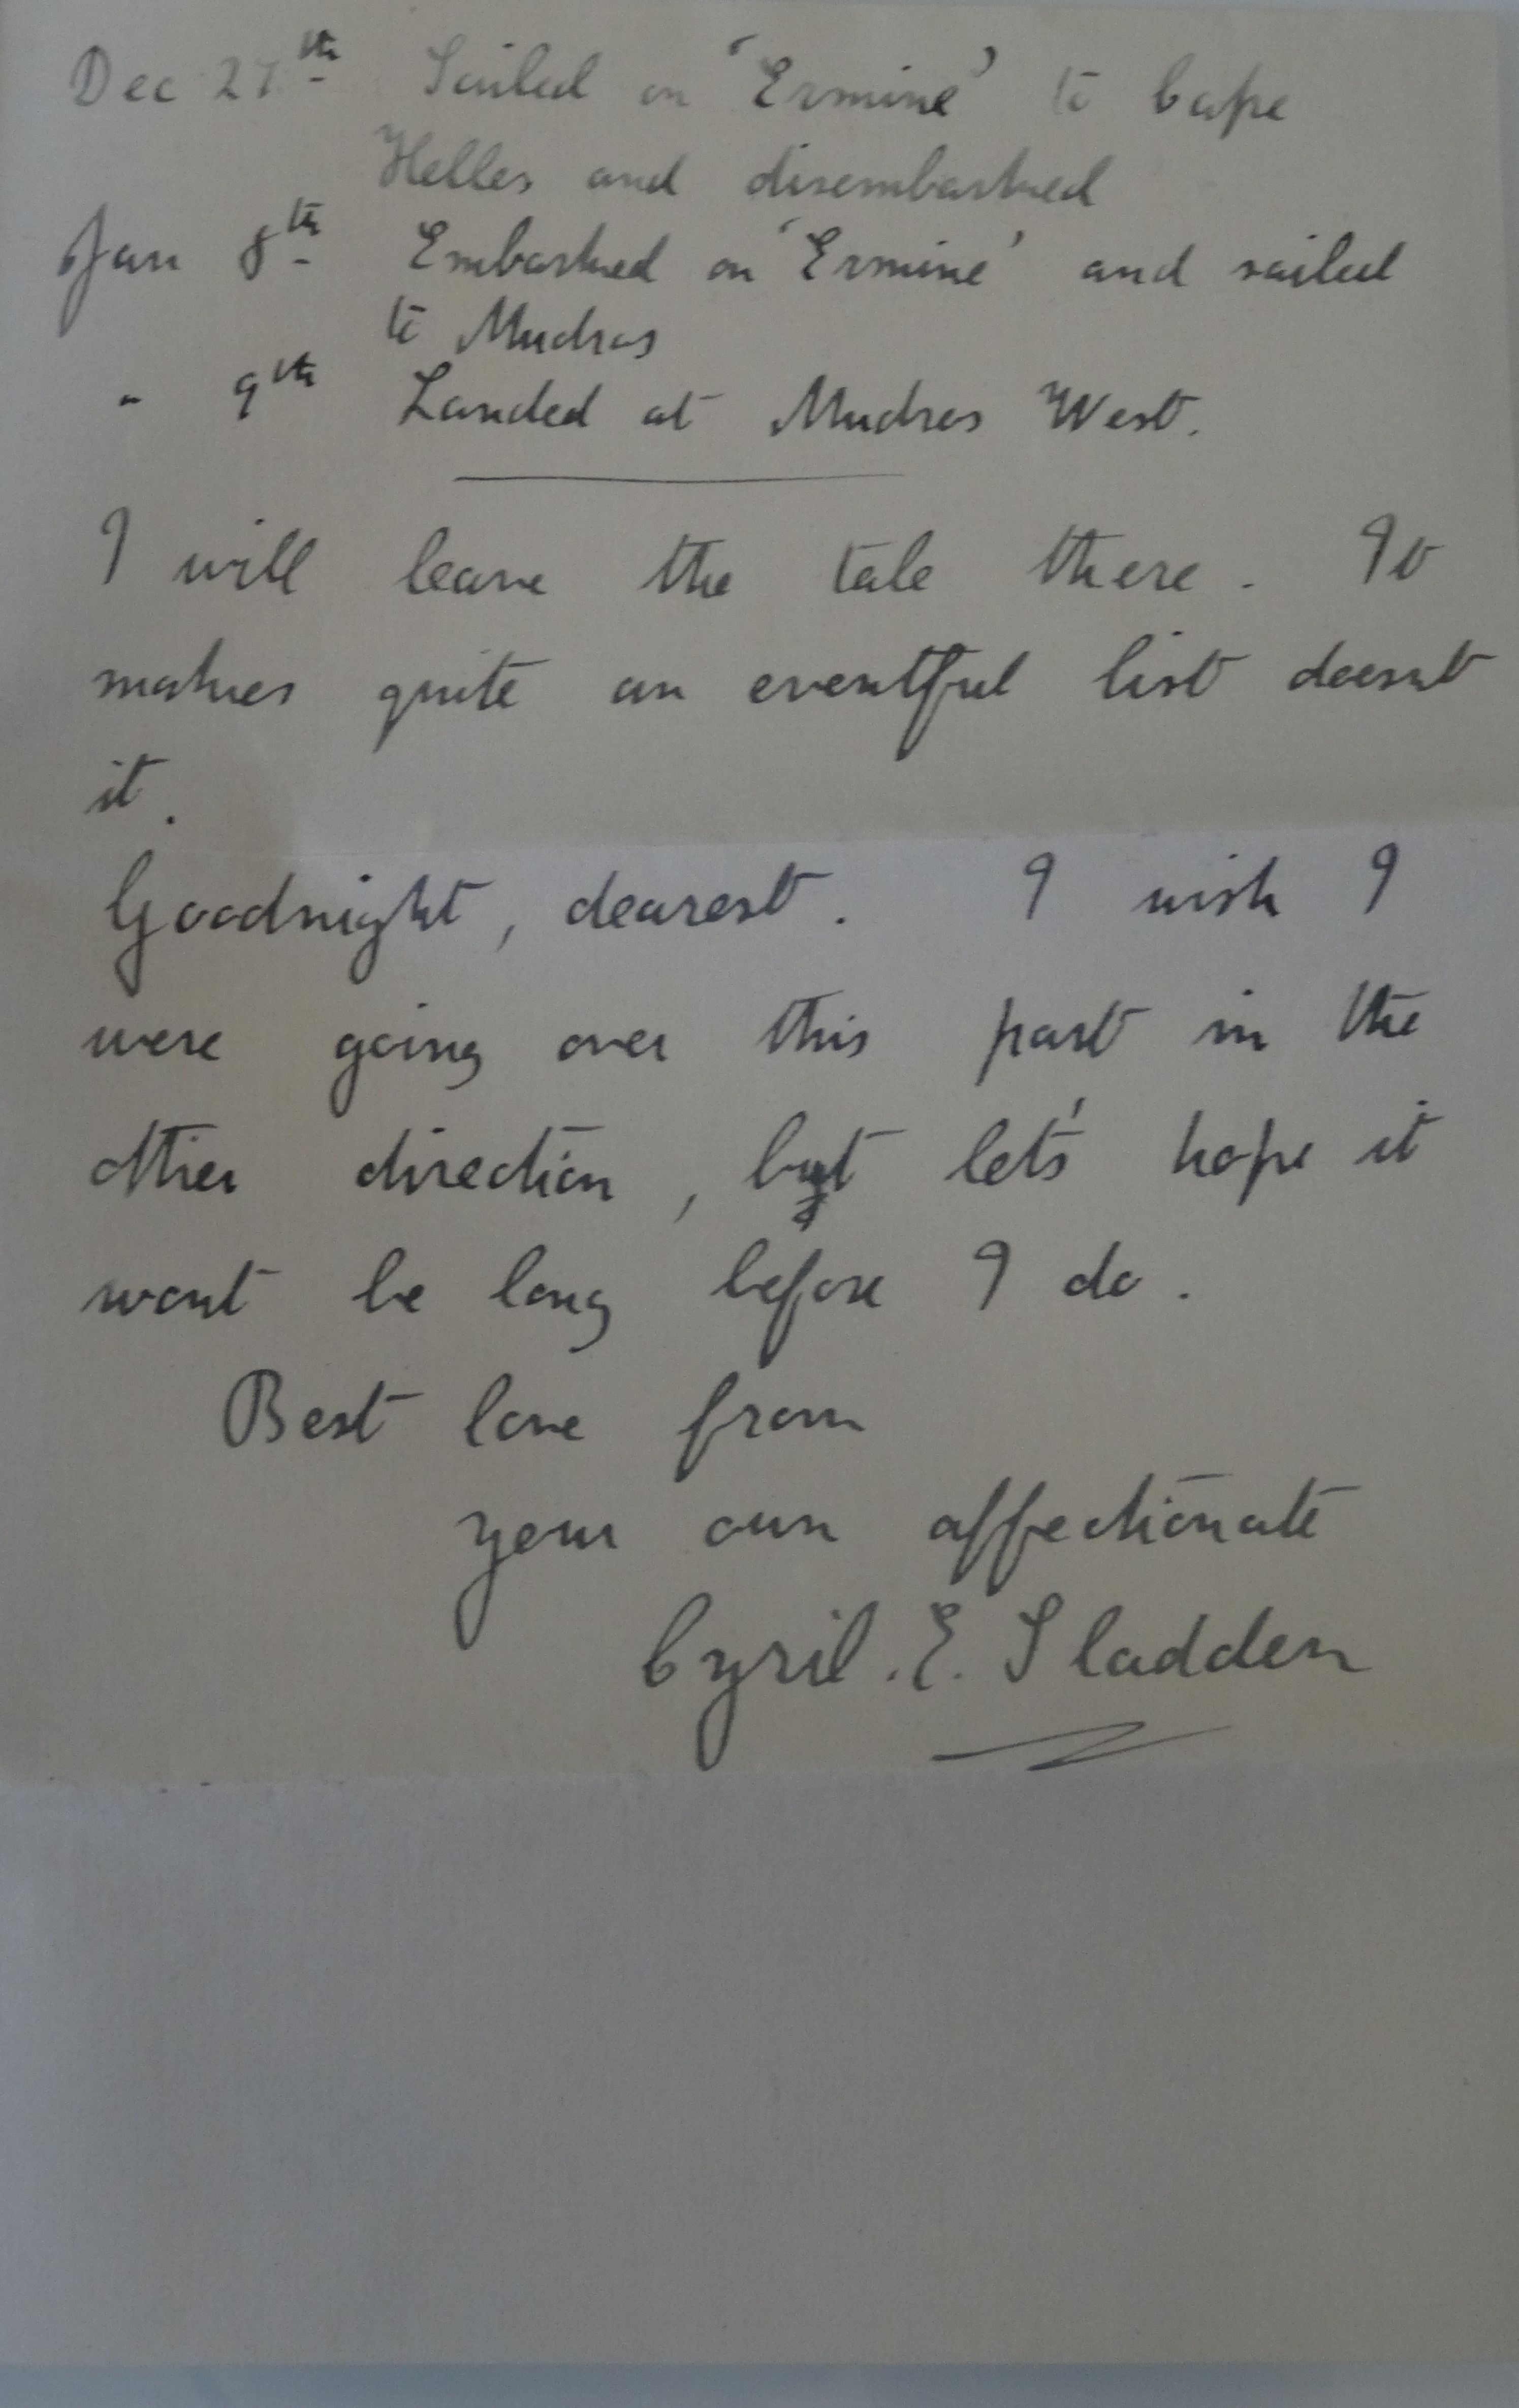 Dec 27th Sailed on 'Ermine' to Cape
Helles and disembarked
Jan 8th Embarked on 'Ermine' and sailed
to Mudros
" 9th Landed at Mudros West.
I will leave the tale there. It
makes quite an eventful list doesnt
it.
Goodnight, dearest. I wish I
were going over this part in the
other direction, but let's hope it
wont be long before I do.
Best love from
your own affectionate
Cyril. E. Sladden